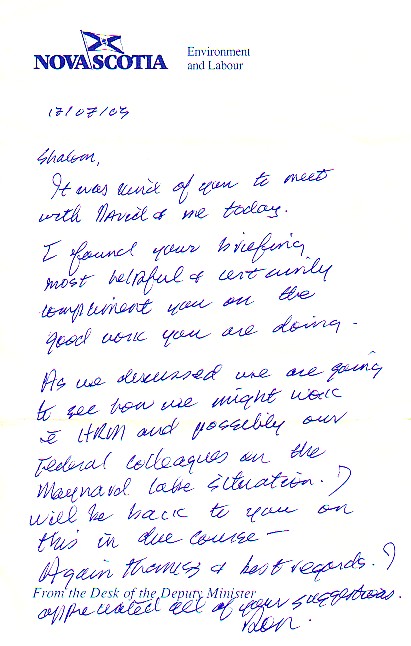 NOVA SCOTIA
Environment
and Labour
Shalom,
It was kind of you to meet
with David & me today.
I found your briefing
most helpful & certainly
compliment you on the
good work you are doing.
As we discussed we are going
to see how we might work
c̄ HRM and possibly our
Federal colleagues on the
Maynard Lake situation. I
will be back to you on
this in due course —
Again thanks & best regards. I
From the Desk of the Deputy Minister
appreciated all of your suggestions.
Ron.